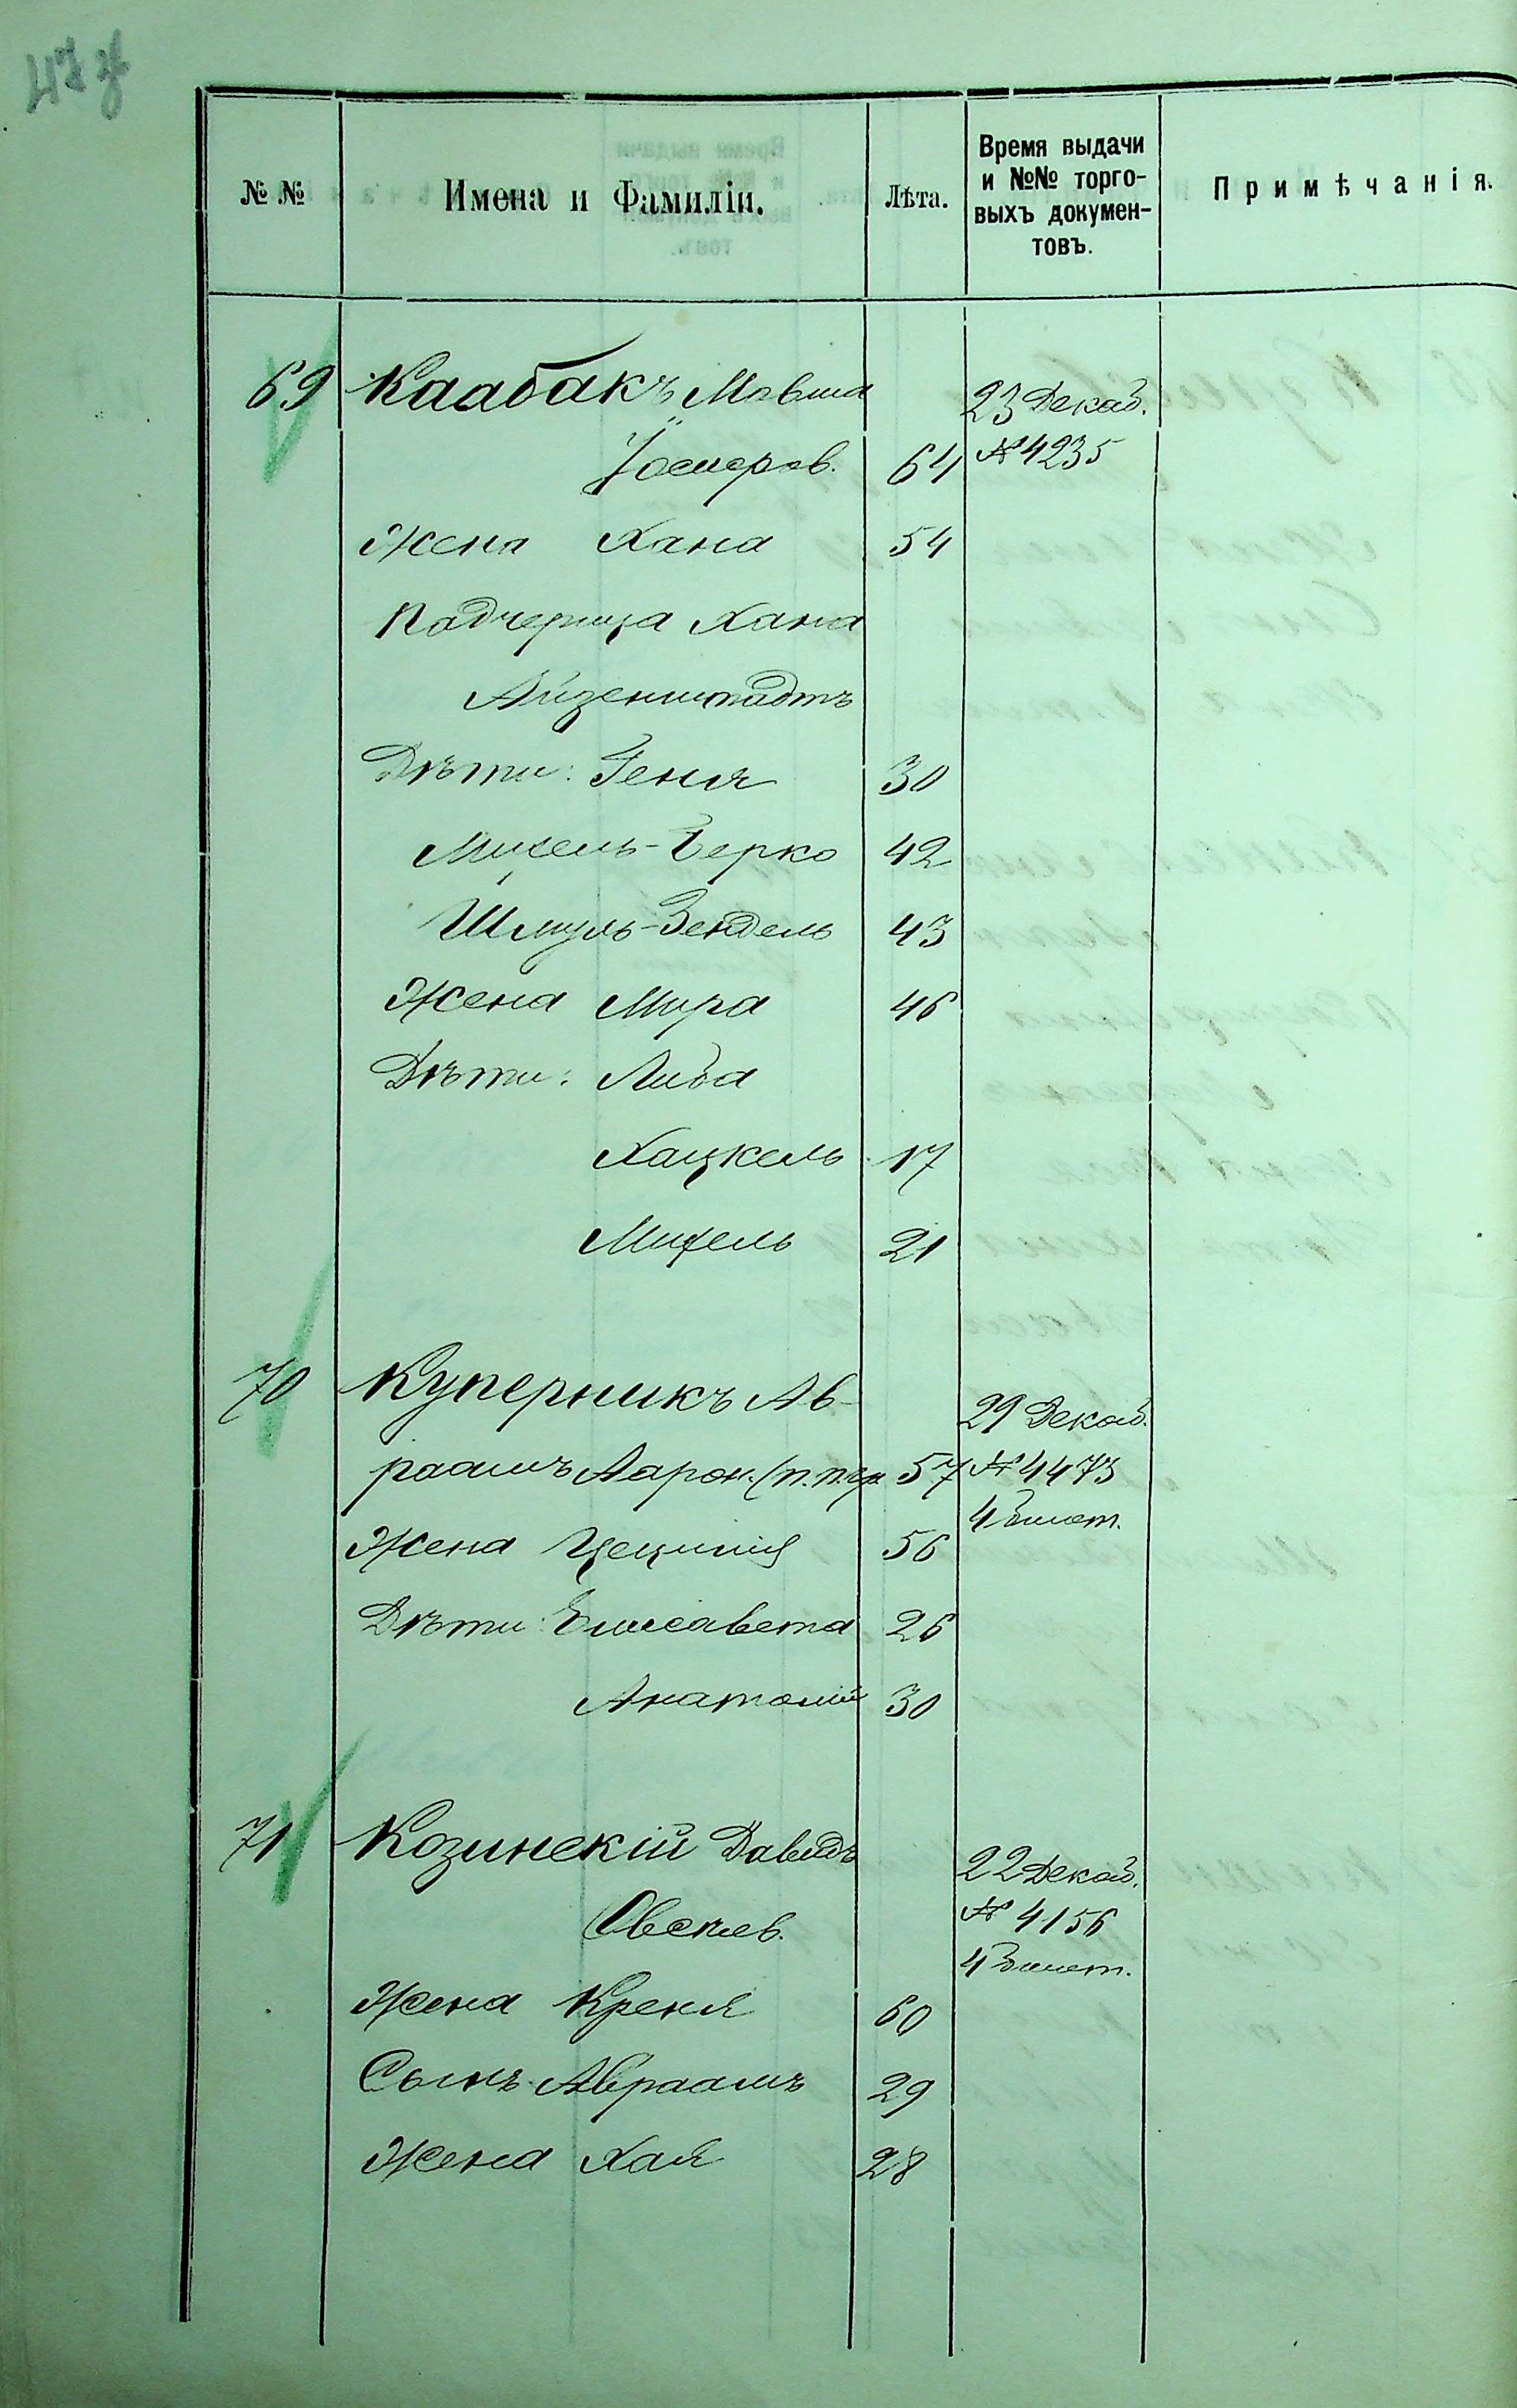 № № Имена и Фамиліи. Лѣта. Время выдачи и №№ торго-выхъ докумен-товъ. Примѣчанія.
69 Каабакъ Мовша 23 Декаб.
64 № 4235
Жена Хана 54
Падчерица Хана
Айзенштадтъ
Дѣти: Геня 30
Михель-Берко 42
Шмуль-Зендель 43
Жена Мира 46
Дѣти: Либа
Хацкель 17
Михель 21
70 Куперникъ Ав- 29 Декаб.
раамъ Аарон. (п.п.гр. 57 № 4473
4 билет.
Жена Цецилія 56
Дѣти: Елисавета 26
Анатолій 30
71 Козинскій Давидъ 22 Декаб.
Овсіев. № 4156
4 билет.
Жена Креня 60
Сынъ Авраамъ 29
Жена Хая 28